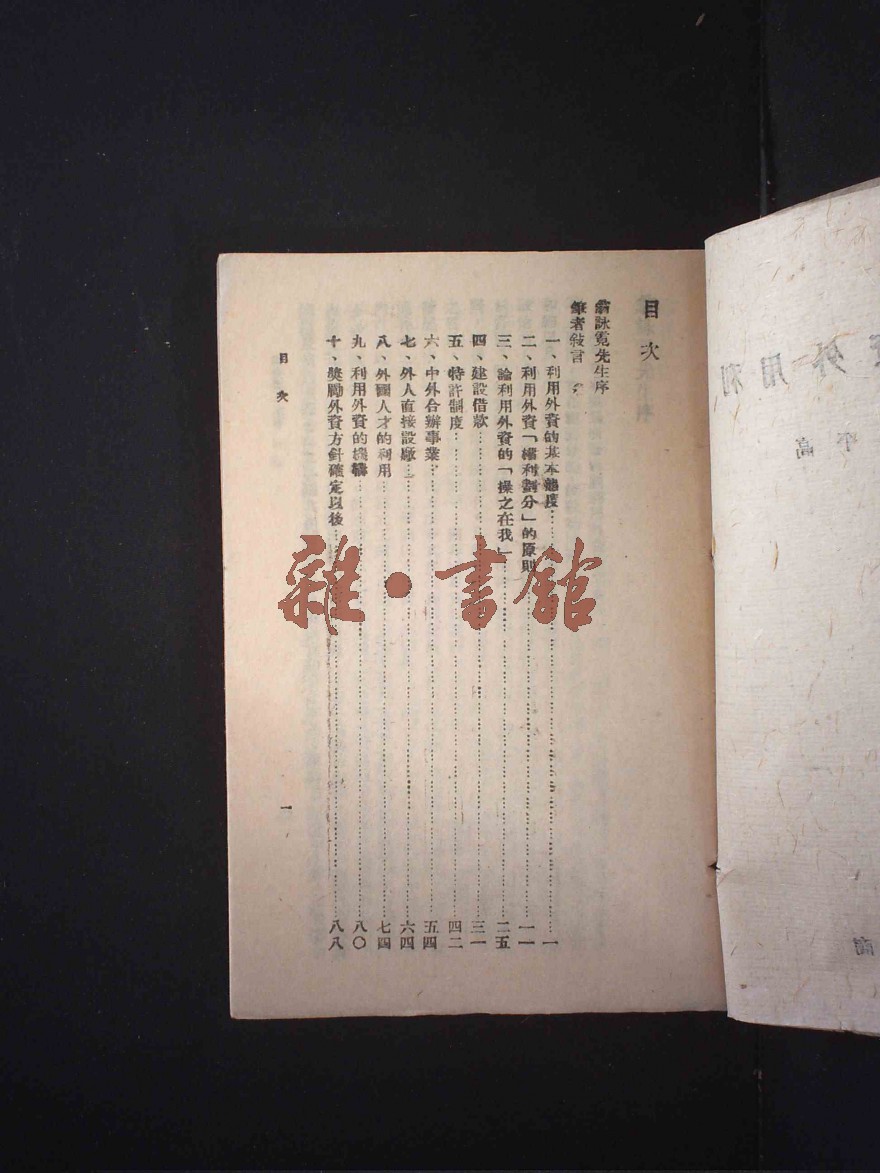 目次
翁詠霓先生序
筆者敍言
一、利用外資的基本態度……一
二、利用外資「權利劃分」的原則……一一
三、論利用外資的「操之在我」……二五
四、建設借款……三一
五、特許制度……四二
六、中外合辦事業……五四
七、外人直接設廠……六四
八、外國人才的利用……七四
九、利用外資的機構……八〇
十、獎勵外資方針確定以後……八八
目次
一
雜·書館
利用外
高平
高